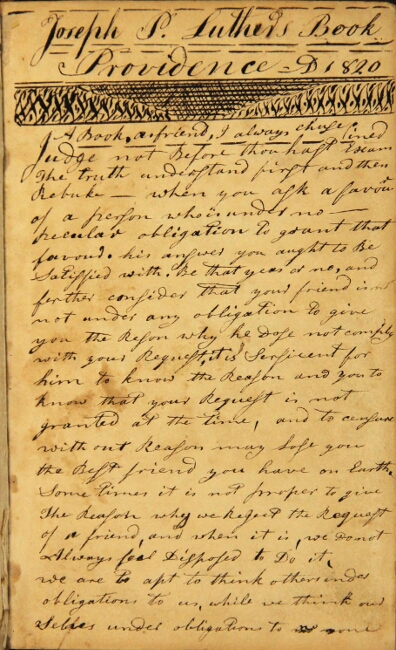 Joseph P. Luther's Book
Providence AD 1820
A Book, a friend, I always chuse.
Judge not Before thou hast Examined
The truth understand first and then
Rebuke — when you ask a favour
of a person who is under no —
pecular obligation to grant that
favour. his answer you aught to Be
Satisfied with. Be that yeas or no, and
ferther consider that your friend is
not under any obligation to give
you the Reson why he Dose not comply
with your Request, it is Sufficent for
him to know the Reason and you to
know that your Request is not
granted at the time, and to censure
without Reason may Lose you
the Best friend you have on Earth.
Some times it is not proper to give
The Reason why we Reject the Request
of a friend, and when it is, we do not
Always feel Disposed to Do it,
we are to apt to think others under
obligations to us, while we think our
Selves under obligations to none